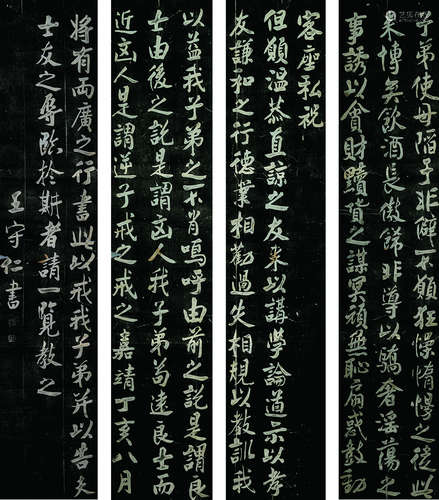 客座私祝
但願溫恭直諒之友來此講學論道示以孝
友謙和之行德業相勸過失相規以教訓我
子弟使毋陷于非僻不願狂懆惰慢之徒此
來博奕飲酒長傲飾非導以驕奢淫蕩之
事誘以貪財黷貨之謀冥頑無恥扇惑鼓動
以益我子弟之不肖嗚呼由前之說是謂良
士由後之說是謂凶人我子弟苟遠良士而
近凶人是謂逆子戒之戒之嘉靖丁亥八月
將有兩廣之行書此以戒我子弟并以告夫
士友之辱臨於斯者請一覽教之
王守仁書